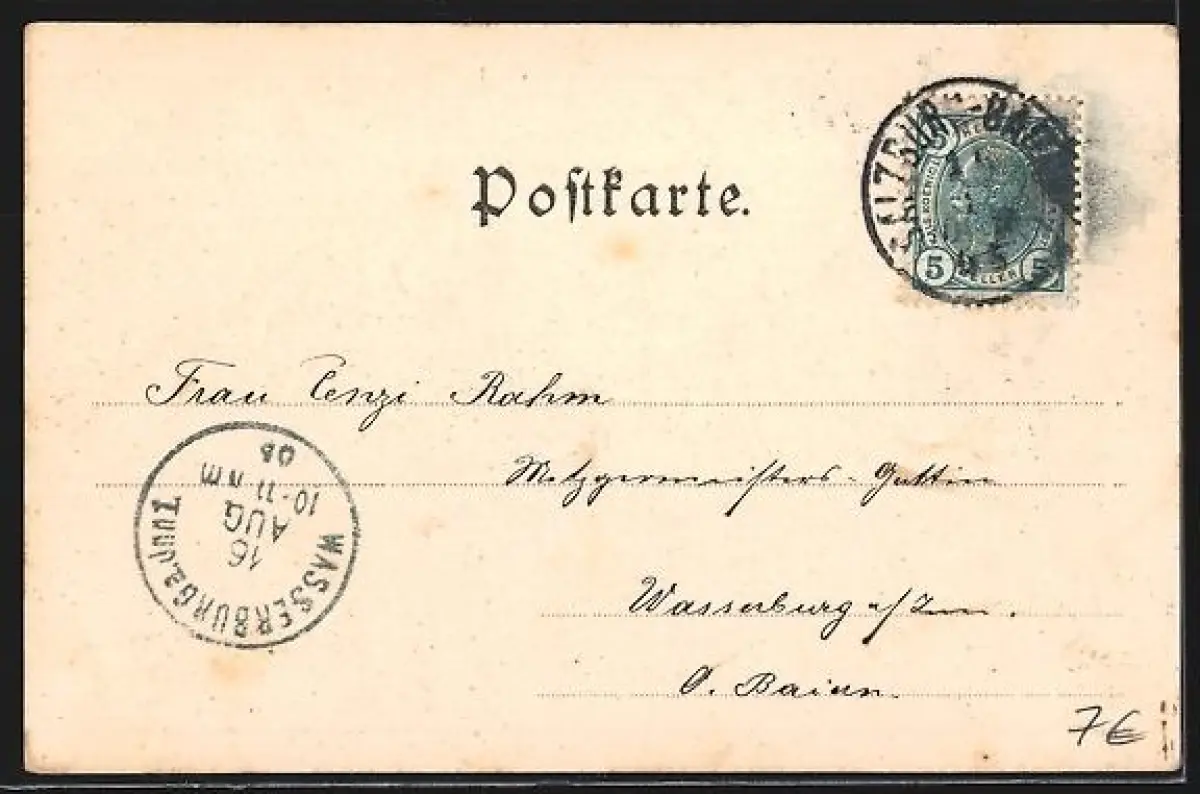 Postkarte.
5 5
HELLER
Frau Cenzi Rahm
Metzgermeisters-Gattin
Wasserburg a/Inn.
O. Baiern.
WASSERBURG a. Inn
16
AUG
10-11 NM
7€